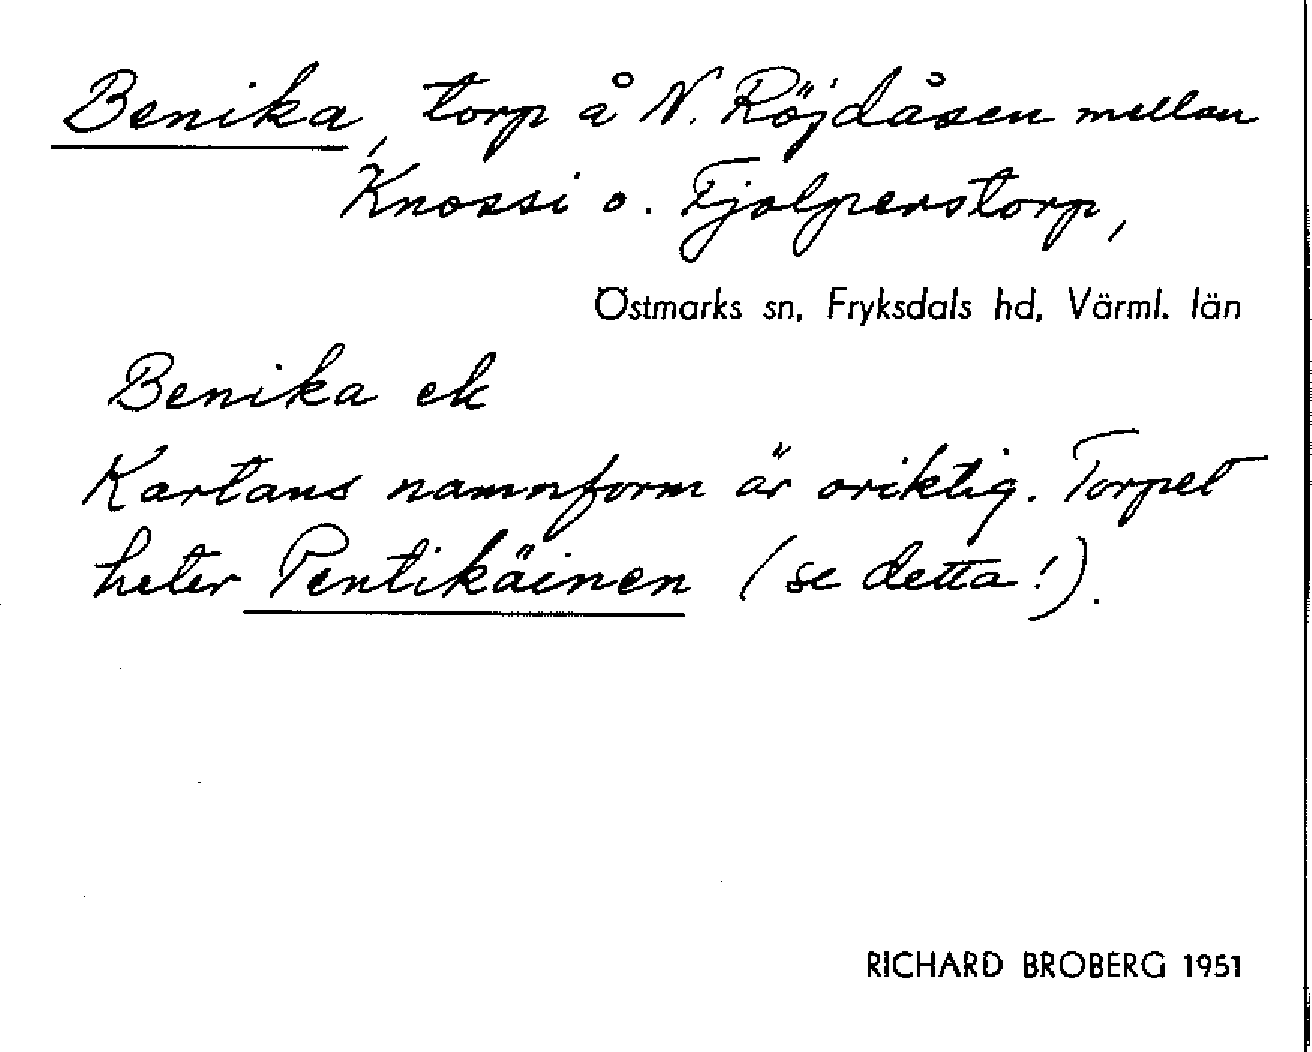 Benika, torp å N. Röjdåsen mellan
Knossi o. Fjolperstorp,
Östmarks sn, Fryksdals hd, Värml. län
Benika ek
Kartans namnform är oriktig. Torpet
heter Pentikäinen (se detta!).
RICHARD BROBERG 1951